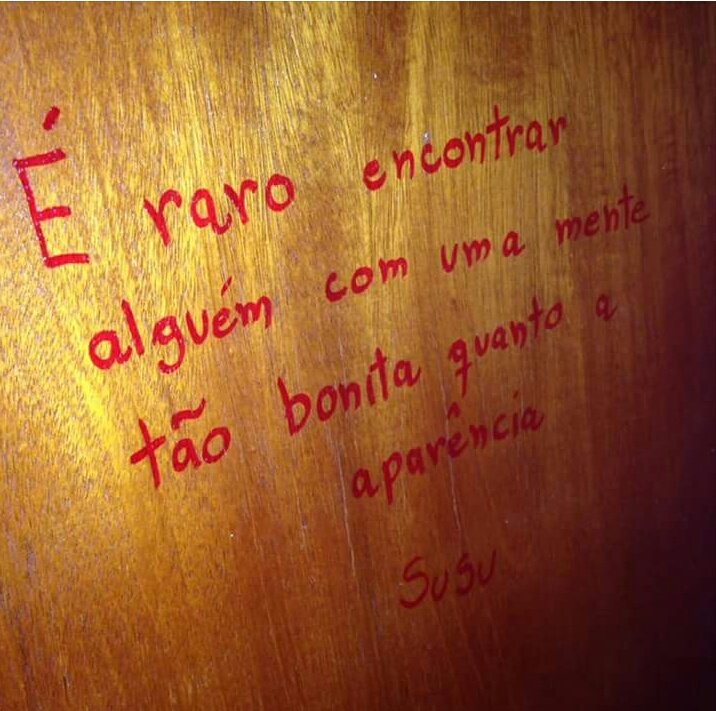 É raro encontrar
alguém com uma mente
tão bonita quanto a
aparência
Susu